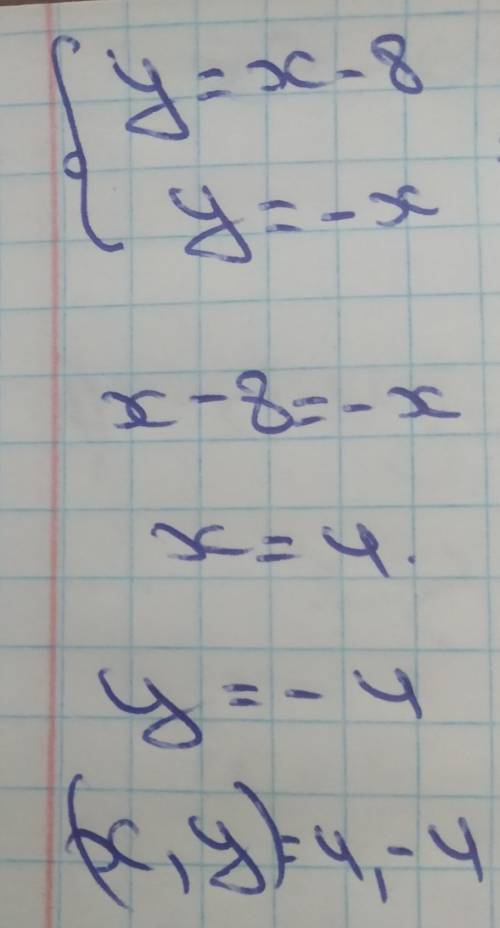 { y = x - 8
y = - x
x - 8 = - x
x = 4.
y = - 4
(x, y) = 4, - 4